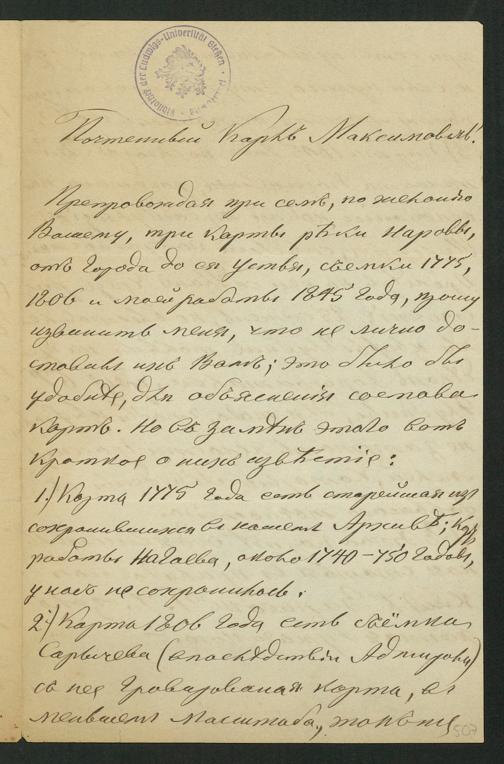 Bibliothek der Ludwigs-Universität Gießen
Почтенный Карлъ Максимовичъ!
Препровождая при семъ, по желанію
Вашему, три карты рѣки Наровы,
отъ города до ея устья, съемки 1775,
1806 и моей работы 1845 года, прошу
извинить меня, что не лично до-
ставилъ ихъ Вамъ; это было бы
удобнѣе, для объясненія состава
картъ. Но въ замѣнъ этого вотъ
краткое о нихъ извѣстіе:
1.) Карта 1775 года есть старейшая изъ
сохранившихся въ нашемъ Архивѣ;
работы Нагаева, около 1740-750 годовъ,
у насъ не сохранилось.
2.) Карта 1806 года есть съёмка
Сарычева (впослѣдствіи Адмирала)
съ нее гравированая карта, въ
меньшемъ масштабѣ,
507